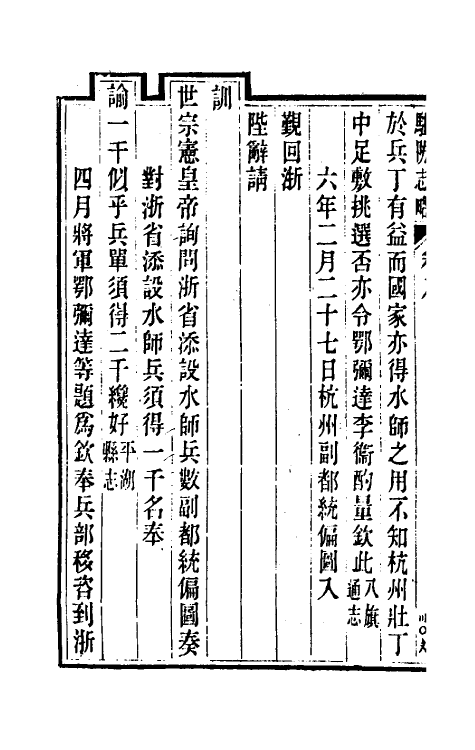 駐防志略
於兵丁有益而國家亦得水師之用不知杭州壯丁
中足敷挑選否亦令鄂彌達李衞酌量欽此八旗通志
六年二月二十七日杭州副都統偏圖入
覲回浙
陛辭請
訓
世宗憲皇帝詢問浙省添設水師兵數副都統偏圖奏
對浙省添設水師兵須得一千名奉
諭一千似乎兵單須得二千纔好平湖縣志
四月將軍鄂彌達等題爲欽奉兵部移咨到浙